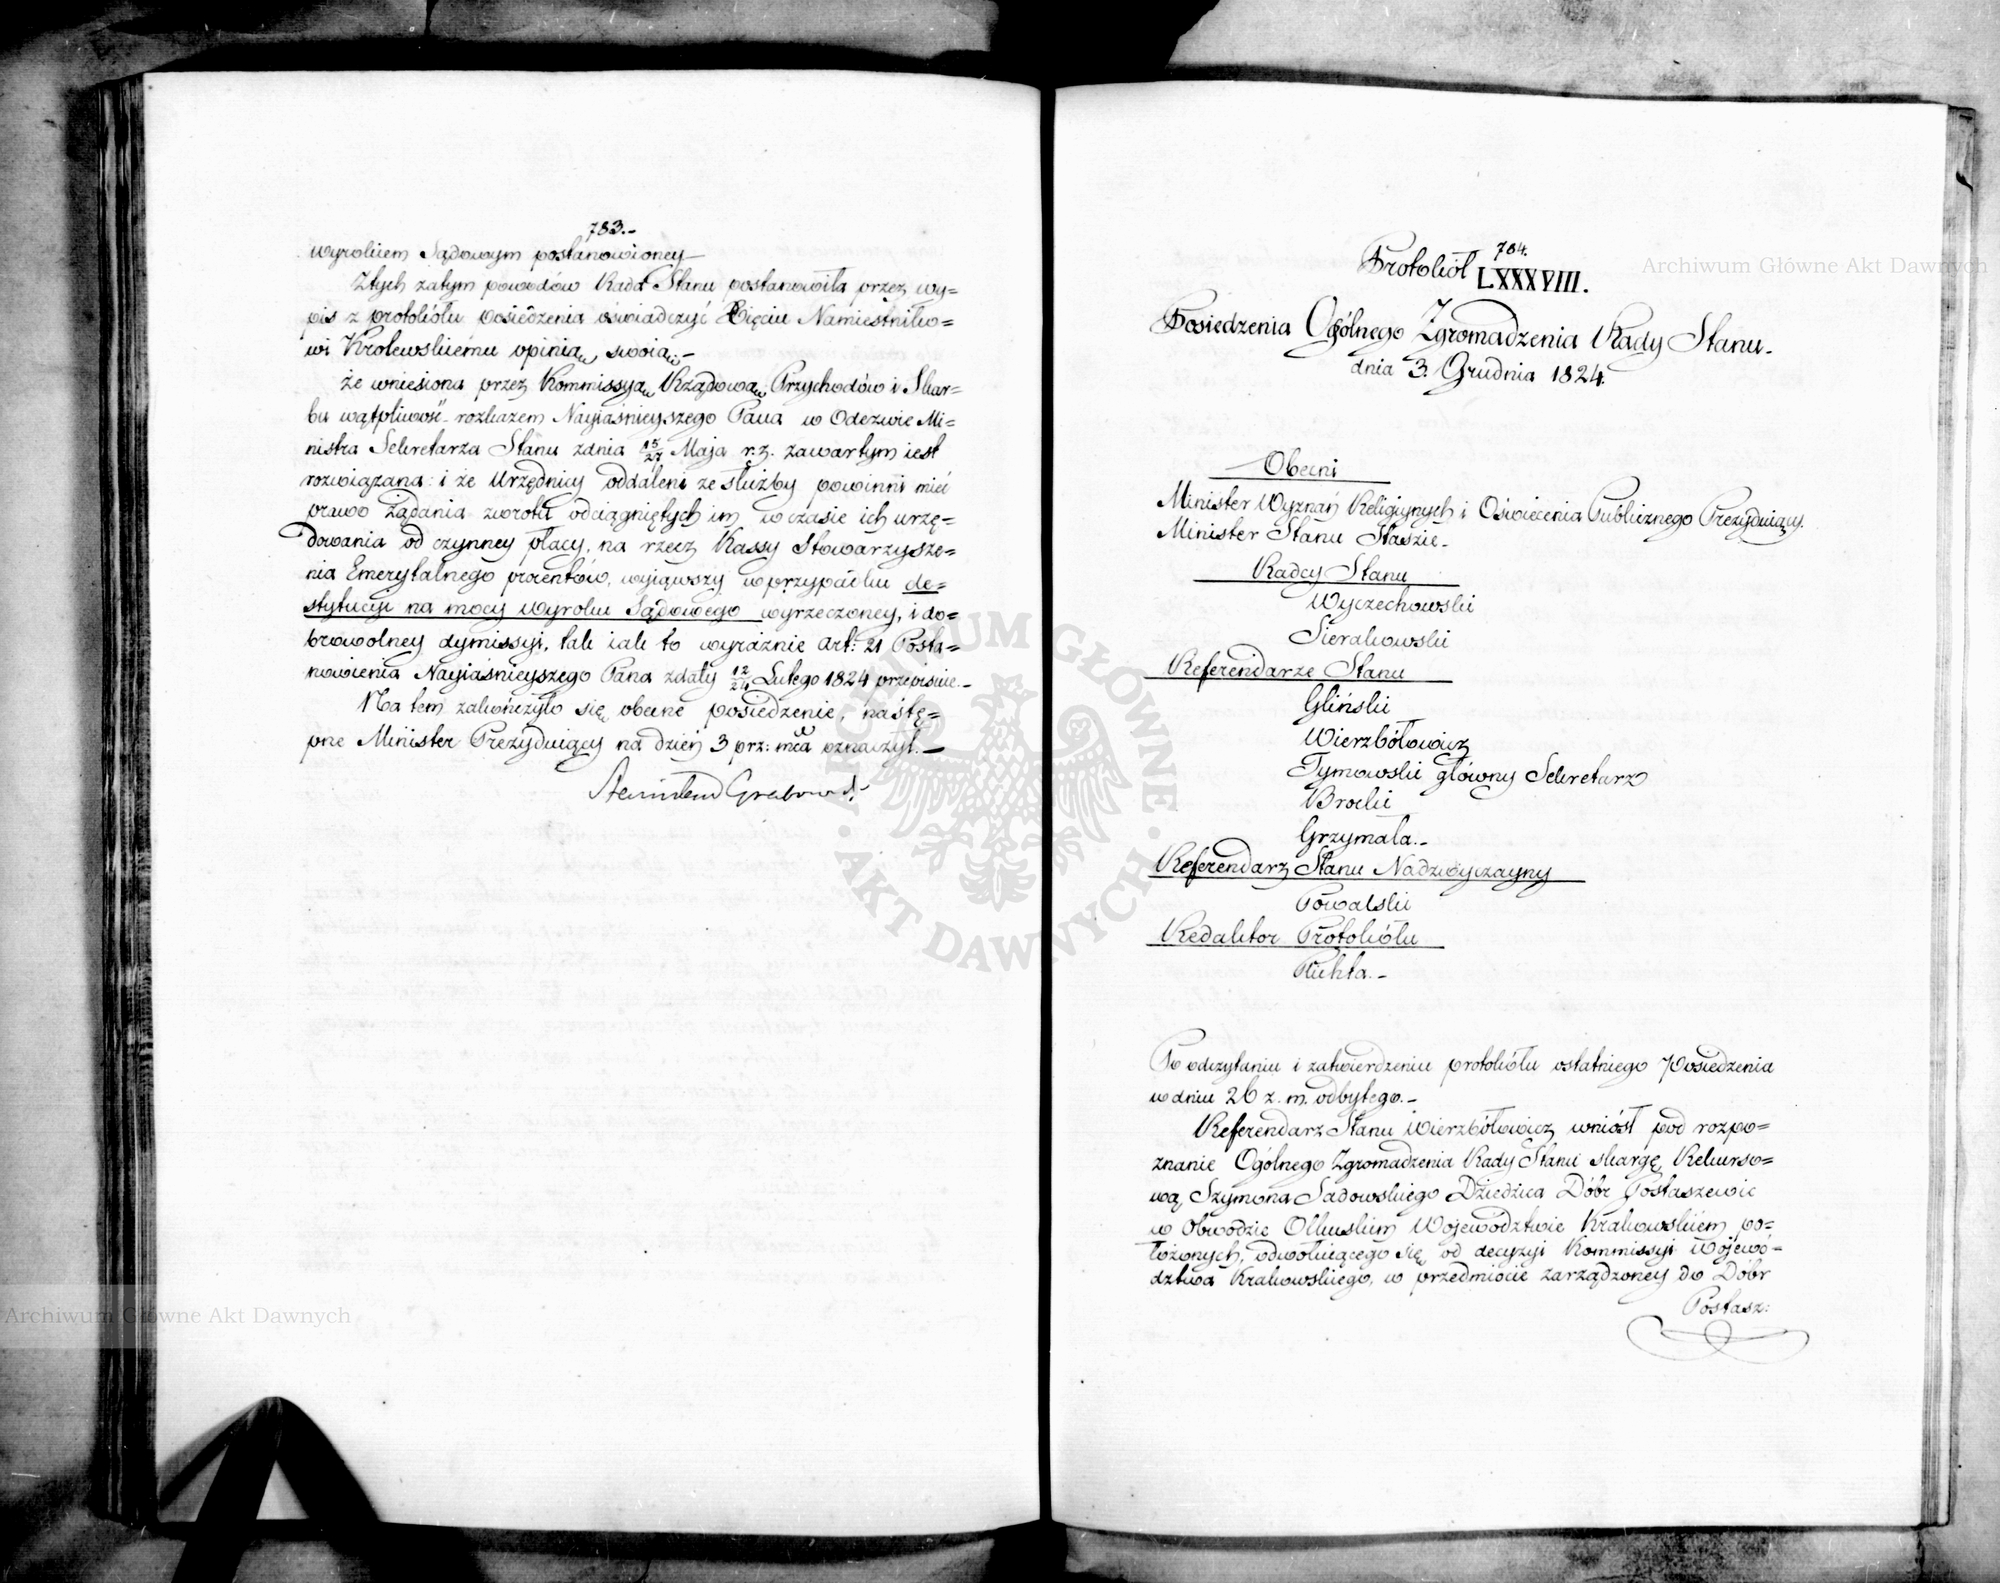 783.-
wyrokiem Sądowym postanowioney-
Ztych zatym powodów Rada Stanu postanowiła przez wy=
pis z protokółu posiedzenia oświadczyć Xięciu Namiestniko=
wi Królewskiemu opinią swoią.-
że wniesiona przez Kommissyą Rządową Przychodów i Skar=
bu wątpliwość rozkazem Nayiaśnieyszego Pana w Odezwie Mi=
nistra Sekretarza Stanu zdnia 15/27 Maja r.z. zawartym iest
rozwiązana: i że Urzędnicy oddaleni ze służby powinni mieć
prawo żądania zwrotu odciągniętych im w czasie ich urzę=
dowania od czynney płacy, na rzecz Kassy Stowarzysze=
nia Emerytalnego procentów, wyiąwszy w przypadku de=
stytucyi na mocy Wyroku Sądowego wyrzeczoney, i do=
browolney dymissyi, tak iak to wyraźnie art: 21 Posta=
nowienia Nayiaśnieyszego Pana zdaty 12/24 Lutego 1824 przepisuie.-
Na tem zakończyło się obecne posiedzenie, nastę=
pne Minister Prezyduiący na dzień 3 prz: mca oznaczył.-
Stanisław Grabowski
784.
Protokół LXXXVIII.
Posiedzenia Ogólnego Zgromadzenia Rady Stanu.
dnia 3. Grudnia 1824.
Obecni
Minister Wyznań Religiynych i Oświecenia Publicznego Prezyduiący.
Minister Stanu Staszic.
Radcy Stanu
Wyczechowski
Sierakowski
Referendarze Stanu
Gliński
Wierzbołowicz
Tymowski główny Sekretarz
Brocki
Grzymała.-
Referendarz Stanu Nadzwyczayny
Powalski
Redaktor Protokółu
Plichta.-
Po odczytaniu i zatwierdzeniu protokółu ostatniego Posiedzenia
w dniu 26 z. m. odbytego.-
Referendarz Stanu Wierzbołowicz wniósł pod rozpo=
znanie Ogólnego Zgromadzenia Rady Stanu skargę Rekurso=
wą Szymona Sadowskiego Dziedzica Dóbr Postaszewic
w Obwodzie Olkuskim Województwie Krakowskiem po=
łożonych, odwołuiącego się od decyzyi Kommissyi Wojewó=
dztwa Krakowskiego, w przedmiocie zarządzoney do Dóbr
Postasz:
Archiwum Główne Akt Dawnych
Archiwum Główne Akt Dawnych
ARCHIWUM GŁÓWNE · AKT DAWNYCH ·